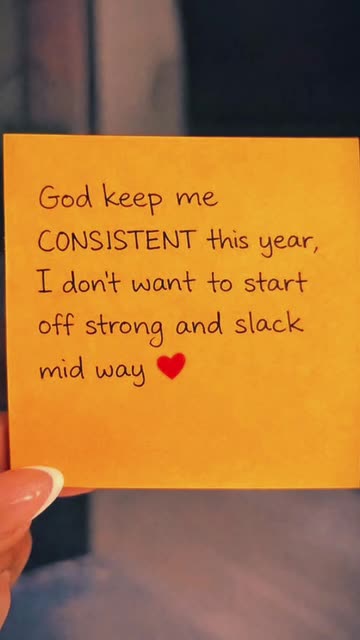 God keep me
CONSISTENT this year,
I don't want to start
off strong and slack
mid way ❤️